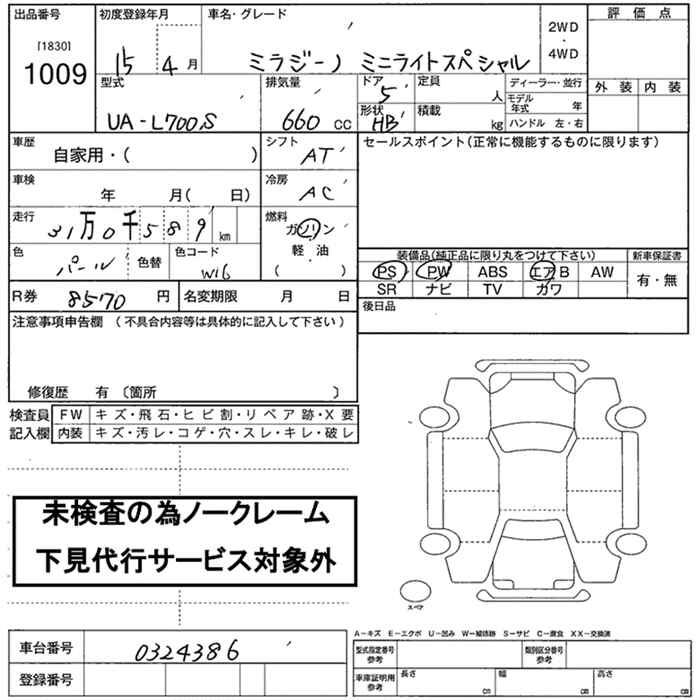 出品番号 初度登録年月 車名・グレード 2WD・4WD 評価点
[1830]
1009 15 4月 ミラジーノ ミニライトスペシャル
型式 排気量 ドア 定員 ディーラー・並行 外装 内装
5 人 モデル年式 年
UA-L700S 660 cc 形状 HB 積載 kg ハンドル 左・右
車歴 自家用・( ) シフト AT セールスポイント(正常に機能するものに限ります)
車検 年 月( 日) 冷房 AC
走行 31万0千589km 燃料 ガソリン
軽・油
( ・ )
色 パール 色替 色コード W16
装備品(純正品に限り丸をつけて下さい) 新車保証書
PS PW ABS エアB AW 有・無
SR ナビ TV ガワ
R券 8570円 名変期限 月 日 後日品
注意事項申告欄 (不具合内容等は具体的に記入して下さい)
修復歴 有 〔箇所 〕
検査員記入欄 FW キズ・飛石・ヒビ割・リペア跡・X要
内装 キズ・汚レ・コゲ・穴・スレ・キレ・破レ
未検査の為ノークレーム
下見代行サービス対象外
スペア
A-キズ E-エクボ U-凹み W-補修跡 S-サビ C-腐食 XX-交換済
車台番号 0324386 型式指定番号 参考 類別区分番号 参考
登録番号 車庫証明用 参考 長さ cm 幅 cm 高さ cm